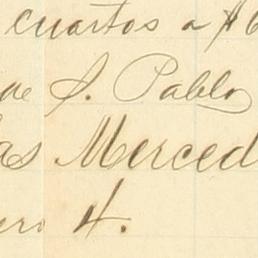 cuartos a $6
de S. Pablo
as Merced
ero 4.